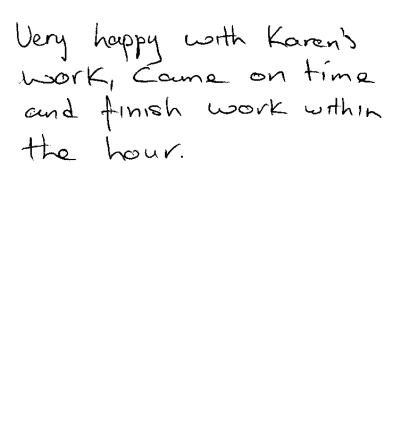 Very happy with Karen's
work, Came on time
and finish work within
the hour.